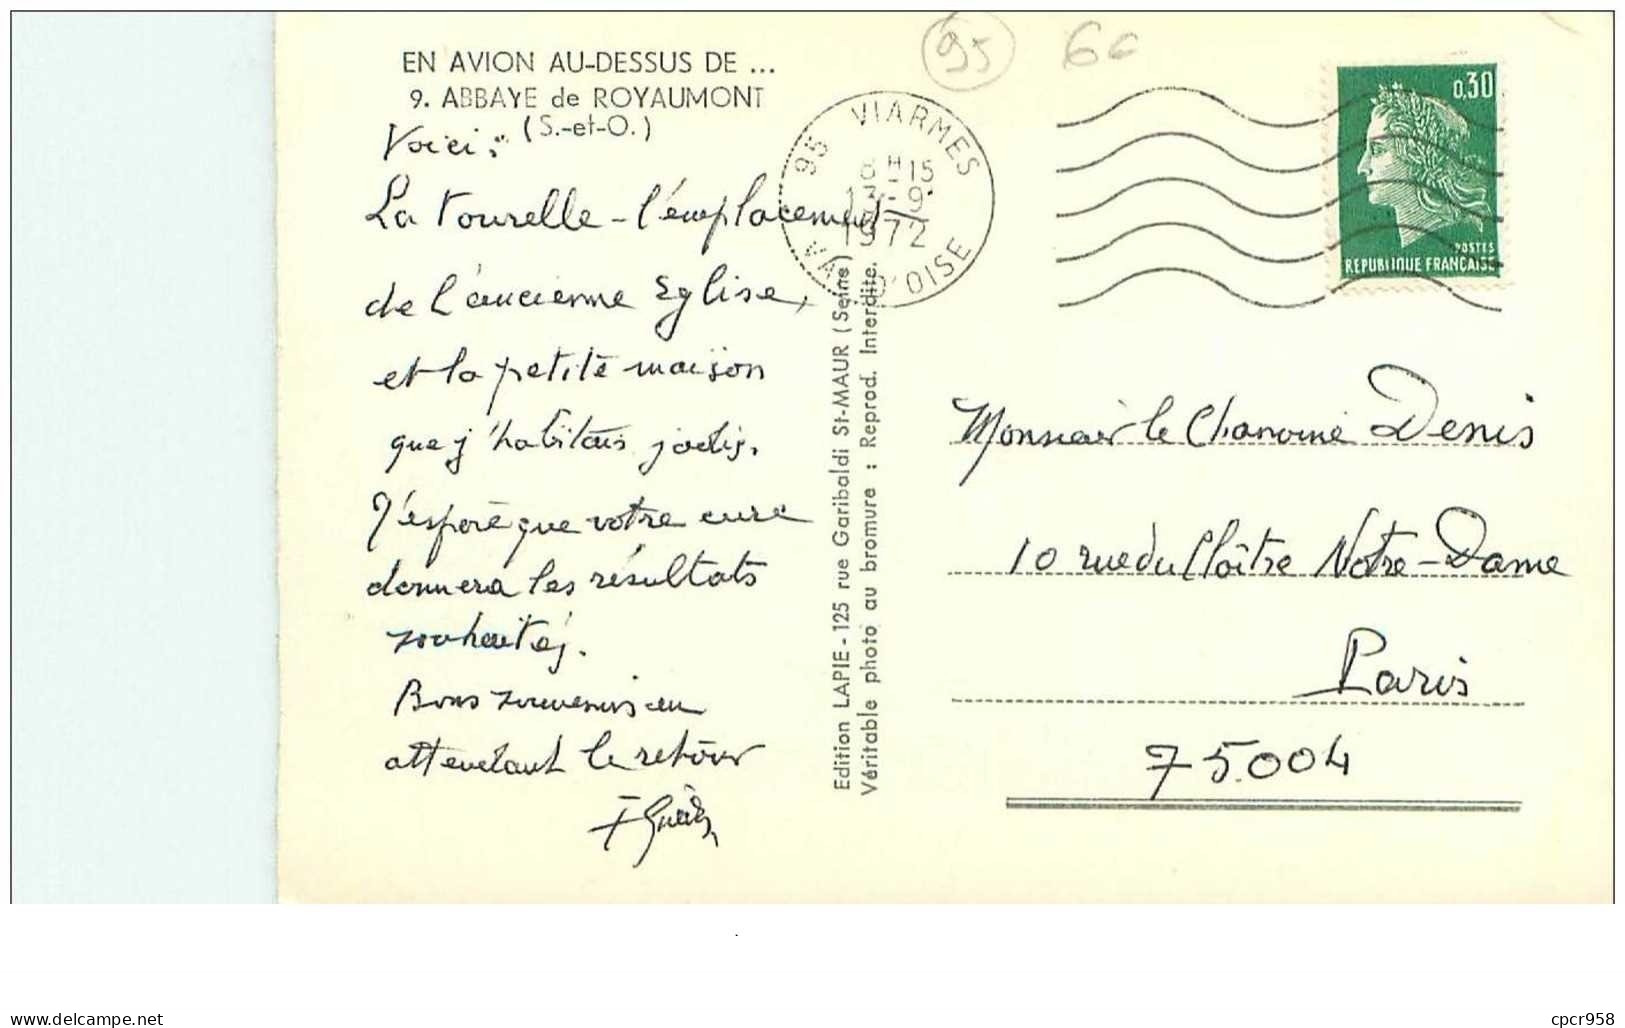 EN AVION AU-DESSUS DE ...
9. ABBAYE de ROYAUMONT
(S.-et-O.)
Voici :
La Tourelle - l'emplacement
de l'ancienne Eglise,
et la petite maison
que j'habitais jadis.
J'espère que votre cure
donnera les résultats
souhaités.
Bons souvenirs en
attendant le retour
Edition LAPIE - 125 rue Garibaldi St-MAUR (Seine)
Véritable photo au bromure : Reprod. Interdite.
95 VIARMES
8H15
13-9
1972
VAL D'OISE
95
60
0,30
POSTES
REPUBLIQUE FRANÇAISE
Monsieur le Chanoine Denis
10 rue du Cloître Notre-Dame
Paris
75.004
cpcr958